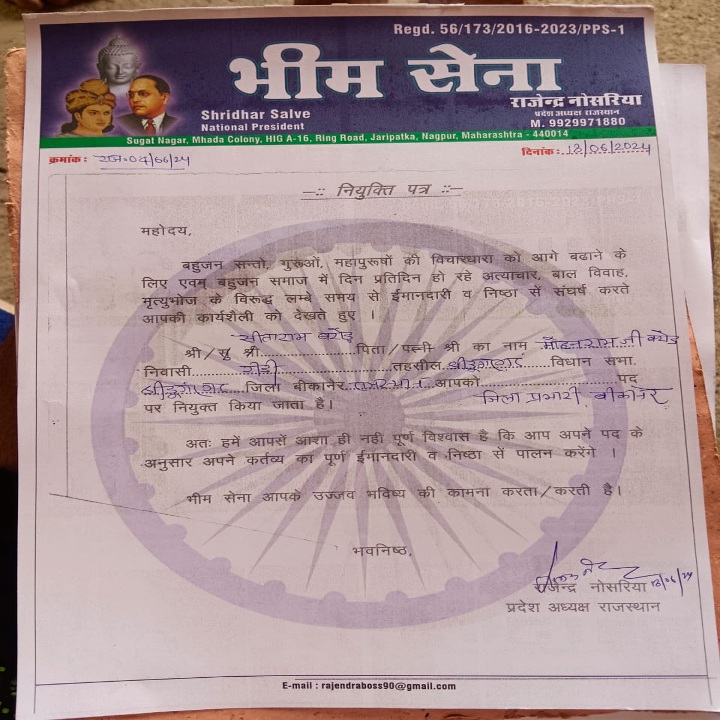 Regd. 56/173/2016-2023/PPS-1
भीम सेना
Shridhar Salve
National President
राजेन्द्र नोसरिया
प्रदेश अध्यक्ष राजस्थान
M. 9929971880
Sugat Nagar, Mhada Colony, HIG A-16, Ring Road, Jaripatka, Nagpur, Maharashtra - 440014
क्रमांक: राज-04/66/24
दिनांक: 18/06/2024
-:: नियुक्ति पत्र ::-
महोदय,
बहुजन सन्तो, गुरूओं, महापुरूषों की विचारधारा को आगे बढाने के
लिए एवम् बहुजन समाज में दिन प्रतिदिन हो रहे अत्याचार, बाल विवाह,
मृत्युभोज के विरुद्ध लम्बे समय से ईमानदारी व निष्ठा से संघर्ष करते
आपकी कार्यशैली को देखते हुए ।
श्री/सु श्री सीताराम पिता/पत्नी श्री का नाम मोहनराम जी
निवासी तहसील श्रीडूंगरगढ़ विधान सभा.
श्रीडूंगरगढ़ जिला बीकानेर राजस्थान आपको जिला प्रभारी, बीकानेर पद
पर नियुक्त किया जाता है।
अतः हमें आपसें आशा ही नही पूर्ण विश्वास है कि आप अपने पद के
अनुसार अपने कर्तव्य का पूर्ण ईमानदारी व निष्ठा से पालन करेंगे ।
भीम सेना आपके उज्जव भविष्य की कामना करता/करती है।
भवनिष्ठ,
राजेन्द्र नोसरिया 18/06/24
प्रदेश अध्यक्ष राजस्थान
E-mail : rajendraboss90@gmail.com